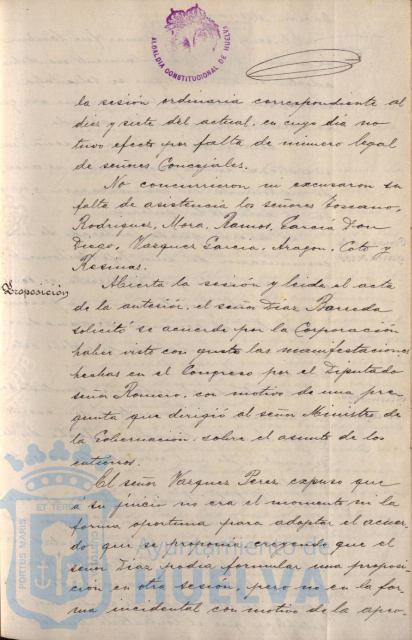 ALCALDIA CONSTITUCIONAL DE HUELVA
la sesión ordinaria correspondiente al
diez y siete del actual, en cuyo dia no
tuvo efecto por falta de número legal
de señores Concejales.
No concurrieron ni excusaron su
falta de asistencia los señores Toscano,
Rodriguez, Mora, Ramos, García Don
Diego, Vazquez García, Aragon, Coto y
Resinas.
Proposición
Abierta la sesión y leida el acta
de la anterior, el señor Diaz Barreda
solicitó se acuerde por la Corporación
haber visto con gusto las manifestaciones
hechas en el Congreso por el Diputado
señor Romero, con motivo de una pre-
gunta que dirigió al señor Ministro de
la Gobernación, sobre el asunto de los
entierros.
El señor Vazquez Perez expuso que
a su juicio no era el momento ni la
forma oportuna para adoptar el acuer-
do que se proponia creyendo que el
señor Diaz podia formular una proposi-
ción en otra sesión, pero no en la for-
ma incidental con motivo de la apro-
PORTUS MARIS ET TERRAE CUSTODIA
Ayuntamiento de
HUELVA